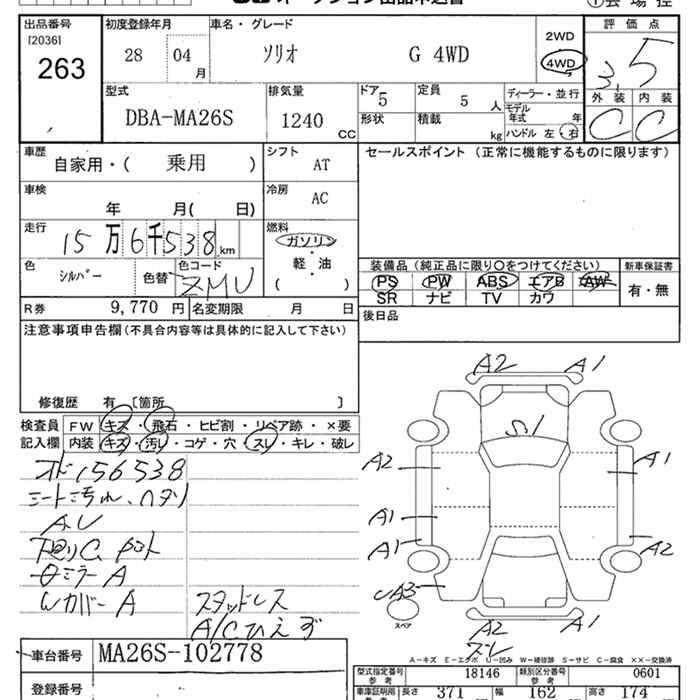 出品番号 初度登録年月 車名・グレード 2WD 評価点
[2036] 28 04 月 ソリオ G 4WD 4WD 3.5
263
外装 内装
型式 排気量 ドア 定員 ディーラー・並行
DBA-MA26S 1240 CC 5 5 人 モデル年式 年 C C
形状 積載 kg ハンドル 左・右
車歴 自家用・( 乗用 ) シフト AT セールスポイント (正常に機能するものに限ります)
車検 年 月( 日) 冷房 AC
走行 15万6千538 km 燃料 ガソリン
軽・油
( )
色 シルバー 色替 色コード ZMU
装備品 (純正品に限り○をつけてください) 新車保証書
PS PW ABS エアB AW 有・無
SR ナビ TV カワ
R券 9,770 円 名変期限 月 日 後日品
注意事項申告欄 (不具合内容等は具体的に記入して下さい)
修復歴 有 〔箇所 〕
検査員 FW キズ・飛石・ヒビ割・リペア跡・×要
記入欄 内装 キズ・汚レ・コゲ・穴・スレ・キレ・破レ
156538
シート汚れ、ヘタリ
A.U
ミラーA
WカバーA スタッドレス
A/Cひえず
A2 A1
S.1
A2 A1
A1
A1 A2
UA3
スペア
A2 A1
スレ
A-キズ E-エクボ U-凹み W-補修跡 S-サビ C-腐食 ××-交換済
車台番号 MA26S-102778
登録番号
型式指定番号 参考 18146 類別区分番号 参考 0601
車庫証明用 参考 長さ 371 幅 162 高さ 174